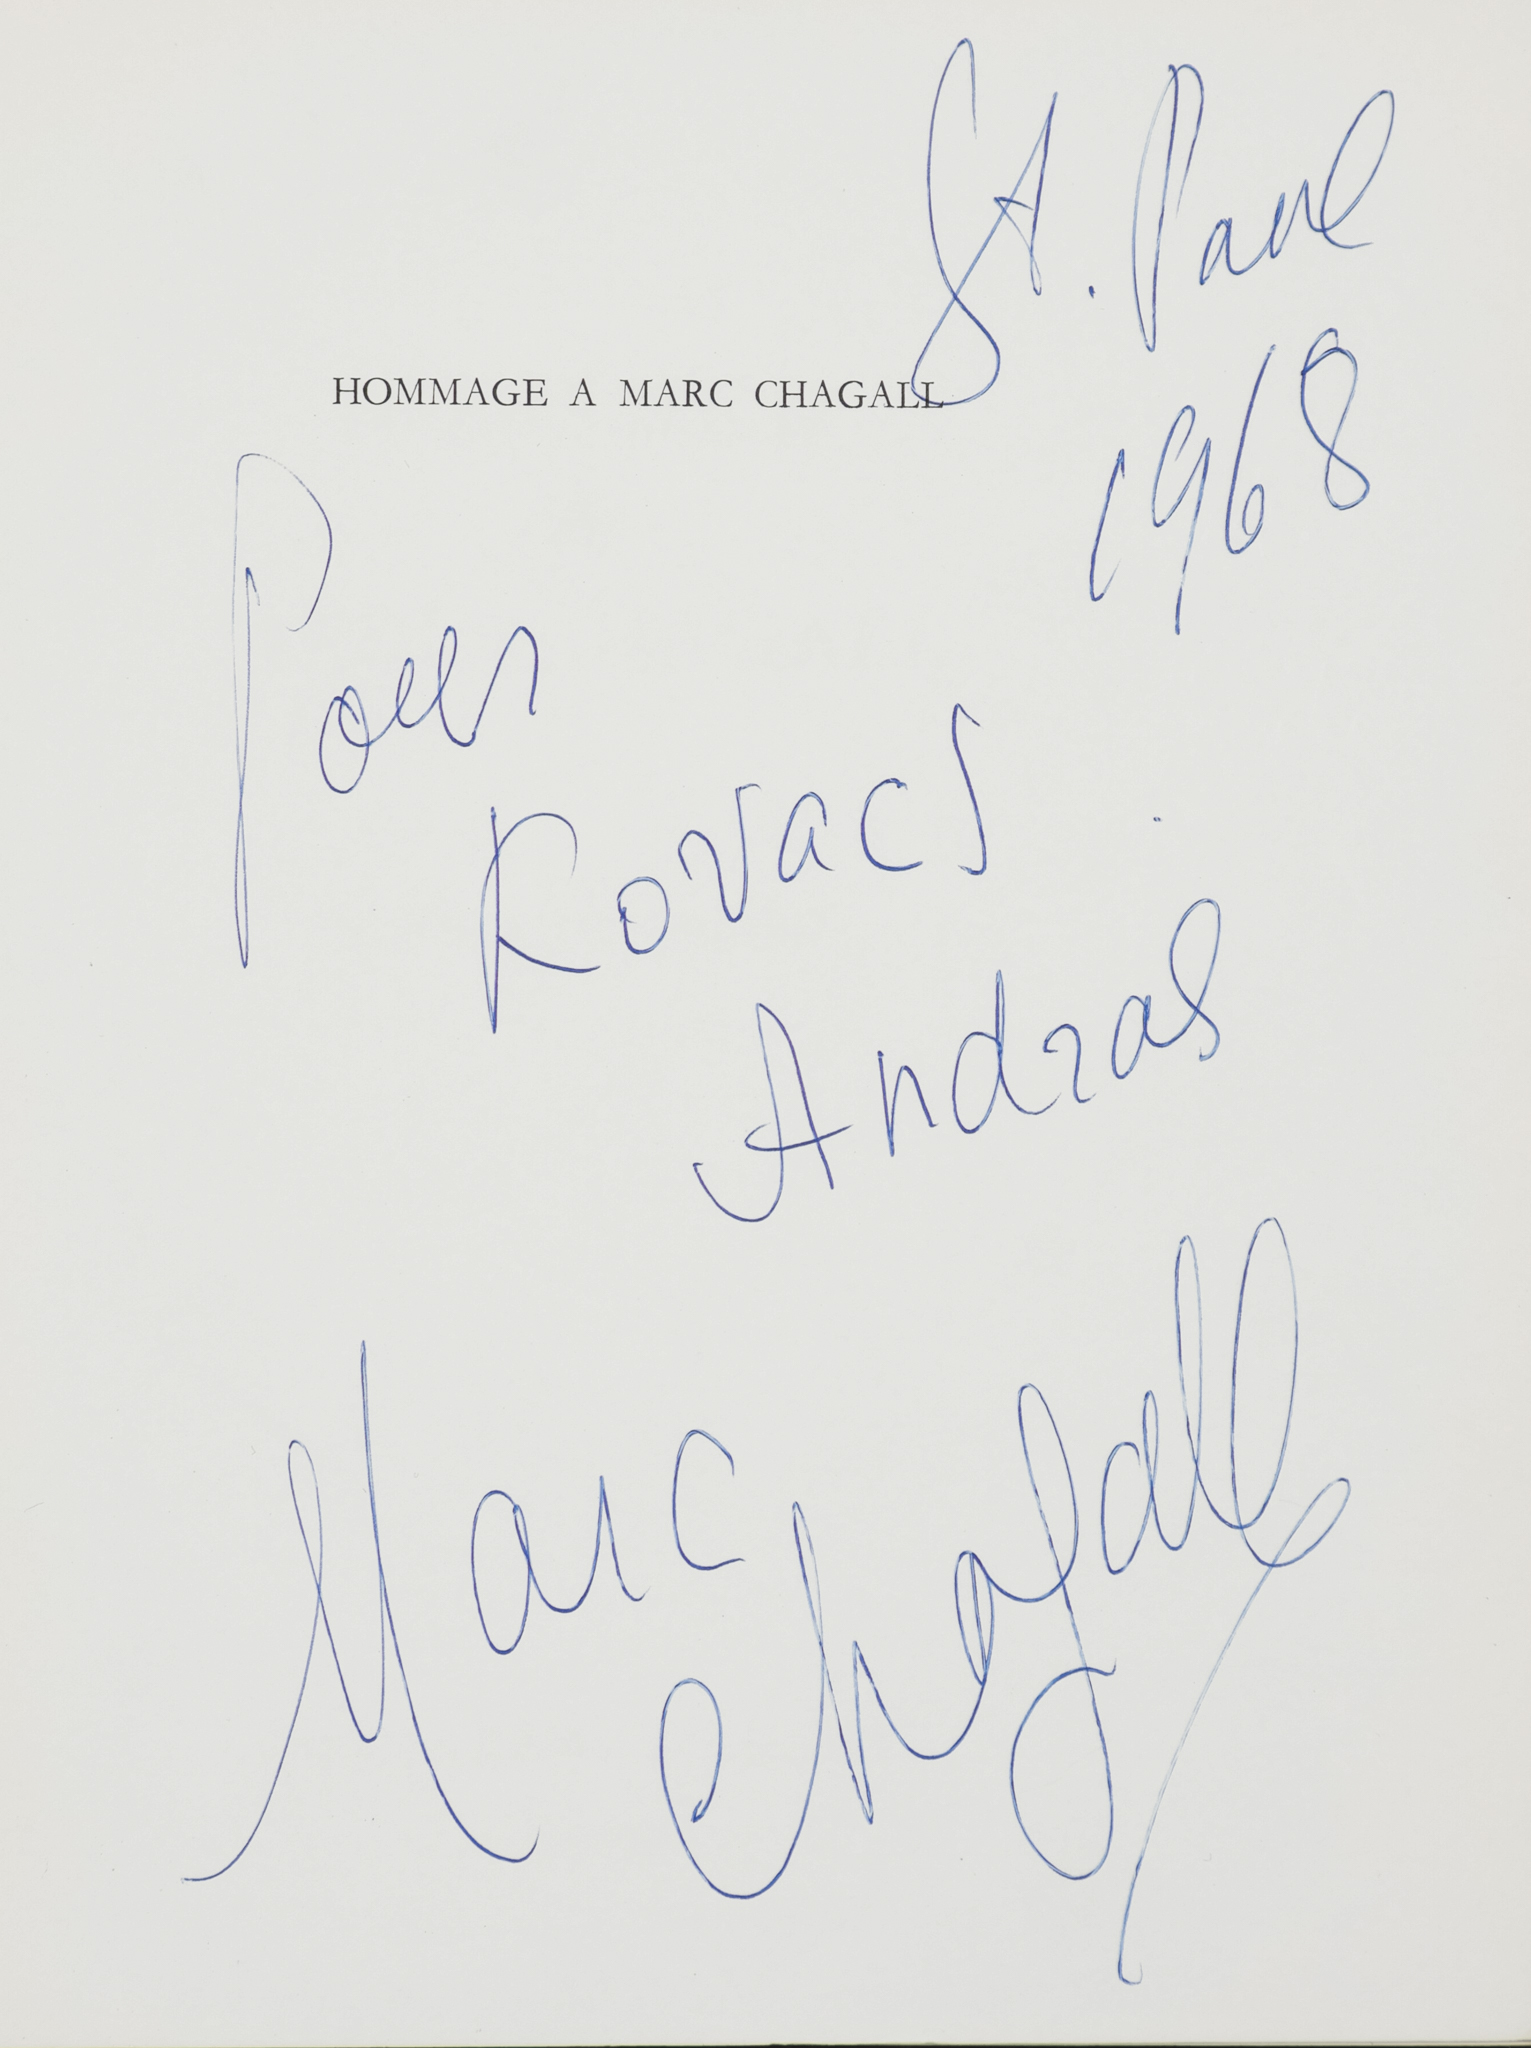 St. Paul
1968
HOMMAGE A MARC CHAGALL
Pour
Kovacs
Andras
Marc
Chagall